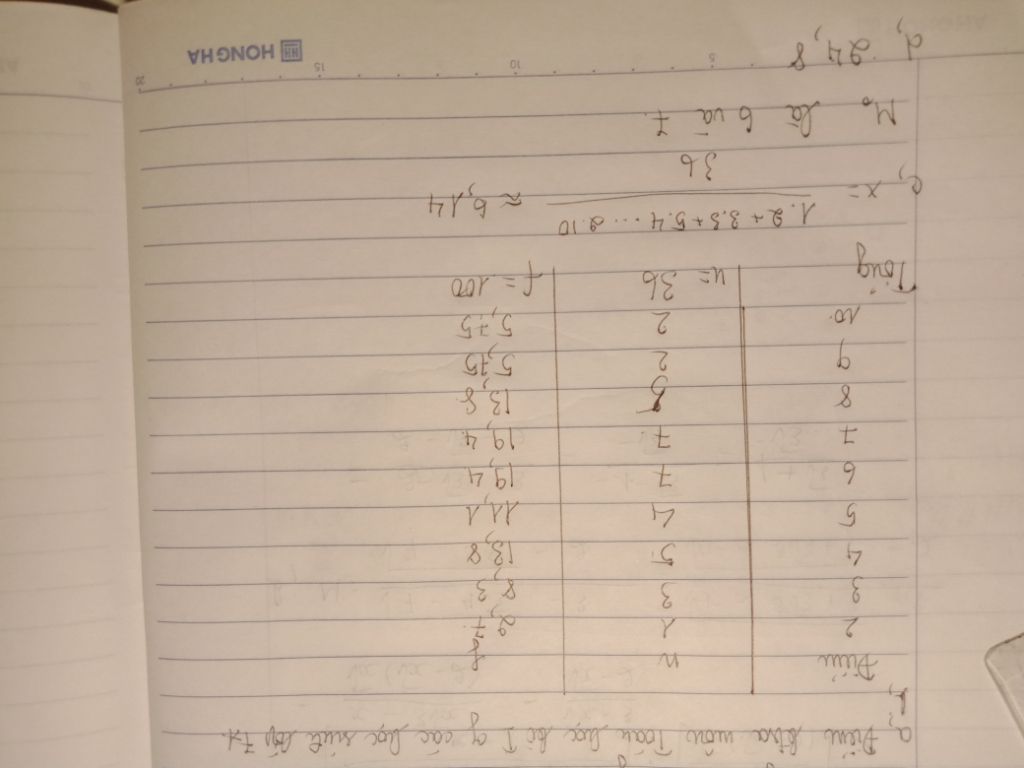 a, Điểm ktra môn Toán học kì I của các học sinh lớp 7A.
b,
Điểm n f
2 1 2,78
3 3 8,3
4 5 13,8
5 4 11,1
6 7 19,4
7 7 19,4
8 5 13,8
9 2 5,75
10 2 5,75
Tổng n = 36 f = 100
c, x = 1.2 + 3.3 + 5.4 ... 2.10 / 36 ≈ 6,14
M₀ là 6 và 7.
d, 24,8
5 10 15 20
HONG HA